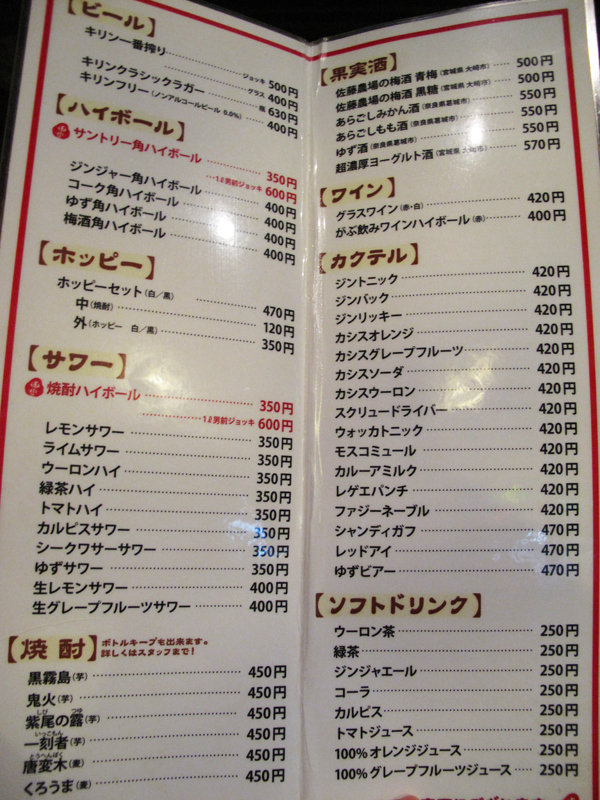 【ビール】
キリン一番搾り
ジョッキ 500円
グラス 400円
キリンクラシックラガー 瓶 630円
キリンフリー(ノンアルコールビール 0.0%) 400円
【ハイボール】
サントリー角ハイボール 350円
1ℓ男前ジョッキ 600円
ジンジャー角ハイボール 400円
コーク角ハイボール 400円
ゆず角ハイボール 400円
梅酒角ハイボール 400円
【ホッピー】
ホッピーセット(白/黒) 470円
中(焼酎) 120円
外(ホッピー 白/黒) 350円
【サワー】
焼酎ハイボール 350円
1ℓ男前ジョッキ 600円
レモンサワー 350円
ライムサワー 350円
ウーロンハイ 350円
緑茶ハイ 350円
トマトハイ 350円
カルピスサワー 350円
シークワサーサワー 350円
ゆずサワー 350円
生レモンサワー 400円
生グレープフルーツサワー 400円
【焼酎】
ボトルキープも出来ます。
詳しくはスタッフまで!
黒霧島(芋) 450円
鬼火(芋) 450円
しび つゆ
紫尾の露(芋) 450円
いっこもん
一刻者(芋) 450円
とうへんぼく
唐変木(麦) 450円
くろうま(麦) 450円
【果実酒】
佐藤農場の梅酒 青梅(宮城県 大崎市) 500円
佐藤農場の梅酒 黒糖(宮城県 大崎市) 500円
あらごしみかん酒(奈良県葛城市) 550円
あらごしもも酒(奈良県葛城市) 550円
ゆず酒(奈良県葛城市) 550円
超濃厚ヨーグルト酒(宮城県 大崎市) 570円
【ワイン】
グラスワイン(赤・白) 420円
がぶ飲みワインハイボール(赤) 400円
【カクテル】
ジントニック 420円
ジンバック 420円
ジンリッキー 420円
カシスオレンジ 420円
カシスグレープフルーツ 420円
カシスソーダ 420円
カシスウーロン 420円
スクリュードライバー 420円
ウォッカトニック 420円
モスコミュール 420円
カルーアミルク 420円
レゲエパンチ 420円
ファジーネーブル 420円
シャンディガフ 470円
レッドアイ 470円
ゆずビアー 470円
【ソフトドリンク】
ウーロン茶 250円
緑茶 250円
ジンジャエール 250円
コーラ 250円
カルピス 250円
トマトジュース 250円
100%オレンジジュース 250円
100%グレープフルーツジュース 250円